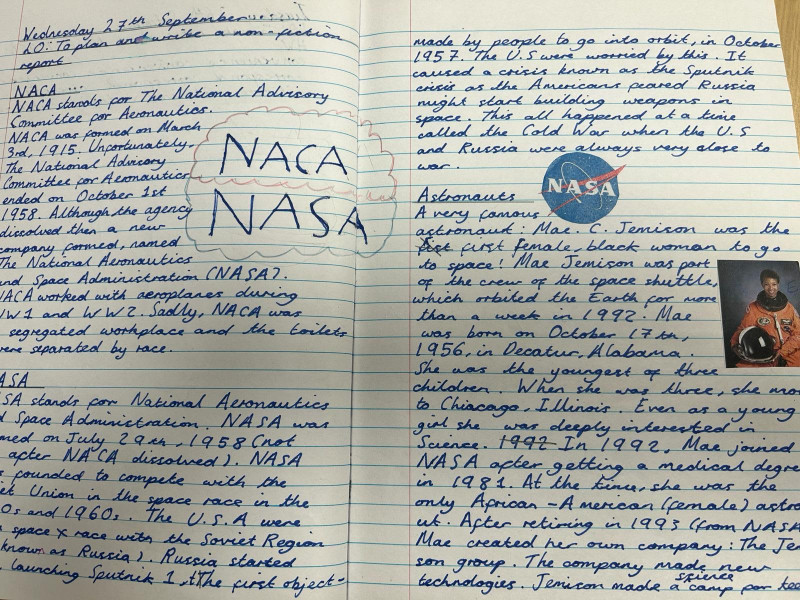 Wednesday 27th September
LO: To plan and write a non-fiction
report.
NACA ...
NACA stands for The National Advisory
Committee for Aeronautics.
NACA was formed on March
3rd, 1915. Unfortunately,
The National Advisory
Committee for Aeronautics
ended on October 1st
1958. Although, the agency
dissolved then a new
company formed, named
The National Aeronautics
and Space Administration (NASA).
NACA worked with aeroplanes during
WW1 and WW2. Sadly, NACA was
segregated workplace and the toilets
were separated by race.
NACA
NASA
ASA
SA stands for National Aeronautics
d Space Administration. NASA was
med on July 29th, 1958 (not
after NACA dissolved). NASA
s founded to compete with the
et Union in the space race in the
0s and 1960s. The U.S.A were
space x race with the Soviet Region
known as Russia). Russia started
launching Sputnik 1, the first object-
made by people to go into orbit, in October
1957. The U.S were worried by this. It
caused a crisis known as the Sputnik
crisis as the Americans feared Russia
might start building weapons in
space. This all happened at a time
called the Cold War when the U.S
and Russia were always very close to
war.
NASA
Astronauts
A very famous
astronaut: Mae. C. Jemison was the
fist first female, black woman to go
to space! Mae Jemison was part
of the crew of the space shuttle,
which orbited the Earth for more
than a week in 1992. Mae
was born on October 17th,
1956, in Decatur, Alabama.
She was the youngest of three
children. When she was three, she mo
to Chiacago, Illinois. Even as a young
girl she was deeply interested in
Science. 1992 In 1992, Mae joined
NASA after getting a medical degre
in 1981. At the time, she was the
only African-American (female) astro
ut. After retiring in 1993 (from NASA
Mae created her own company: The Je
son group. The company made new
technologies. Jemison made a science camp for tee